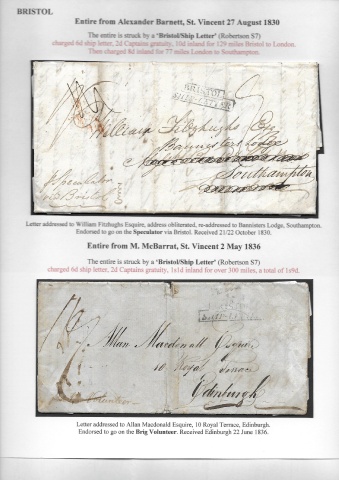 BRISTOL
Entire from Alexander Barnett, St. Vincent 27 August 1830
The entire is struck by a 'Bristol/Ship Letter' (Robertson S7)
charged 6d ship letter, 2d Captains gratuity, 10d inland for 129 miles Bristol to London.
Then charged 8d inland for 77 miles London to Southampton.
BRISTOL
SHIP LETTER
William Fitzhughs Esq
Bannisters Lodge
Southampton
p Speculator
via Bristol
Letter addressed to William Fitzhughs Esquire, address obliterated, re-addressed to Bannisters Lodge, Southampton.
Endorsed to go on the Speculator via Bristol. Received 21/22 October 1830.
Entire from M. McBarrat, St. Vincent 2 May 1836
The entire is struck by a 'Bristol/Ship Letter' (Robertson S7)
charged 6d ship letter, 2d Captains gratuity, 1s1d inland for over 300 miles, a total of 1s9d.
SHIP LETTER
Allan Macdonald Esquire
10 Royal Terrace
Edinburgh
Letter addressed to Allan Macdonald Esquire, 10 Royal Terrace, Edinburgh.
Endorsed to go on the Brig Volunteer. Received Edinburgh 22 June 1836.